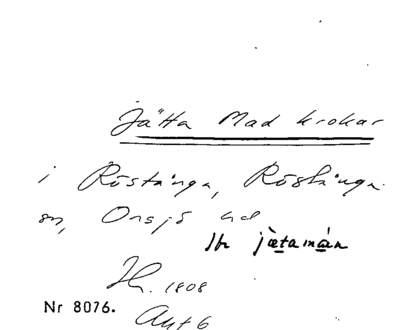 Jätta Mad krokar
i Röstånga, Röstånga
sn, Onsjö hd
Jb jætamán
1808
Nr 8076.
Akt 6